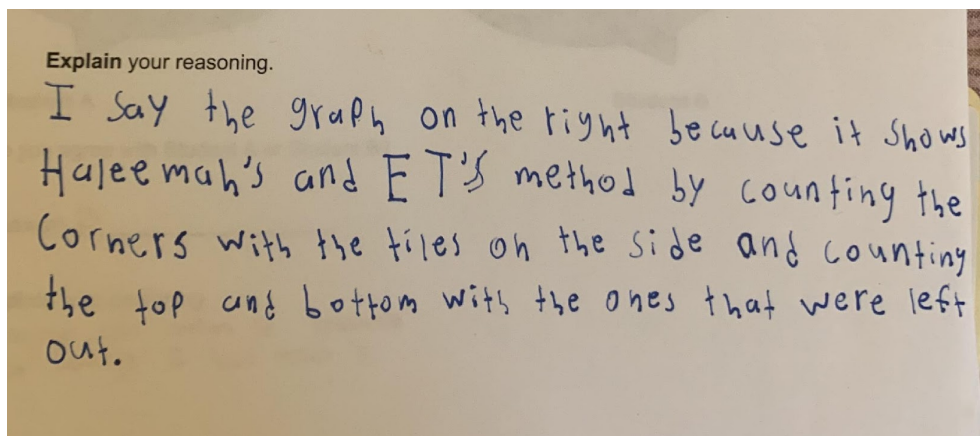 Explain your reasoning.
I say the graph on the right because it shows
Haleemah's and ET's method by counting the
Corners with the tiles on the side and counting
the top and bottom with the ones that were left
out.